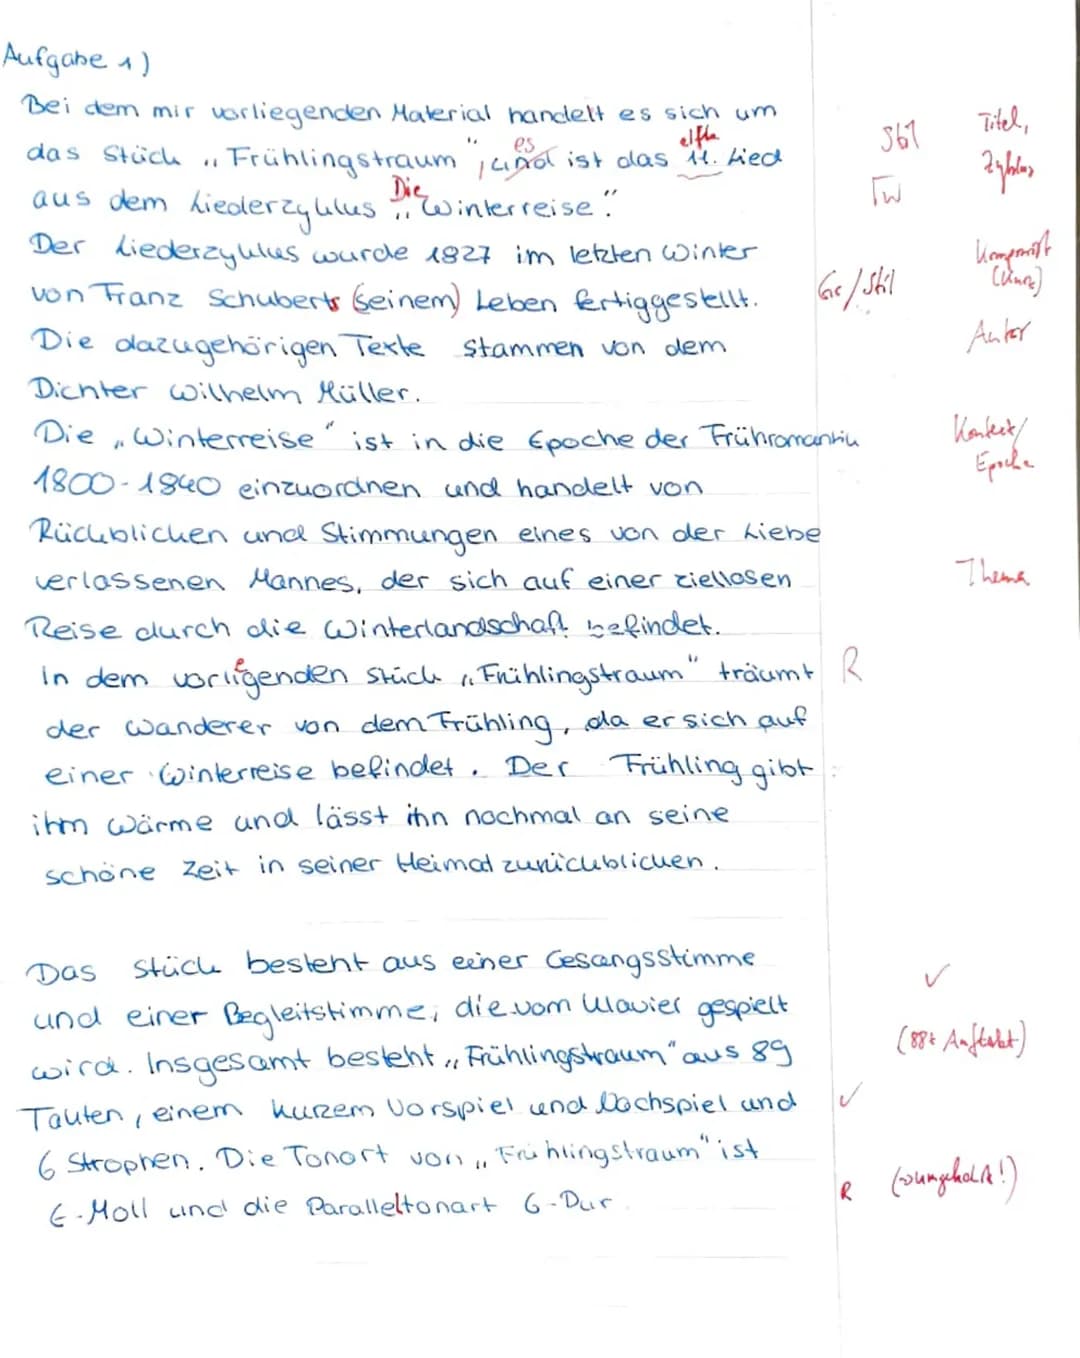 Aufgabe 1)
Bei dem mir vorliegenden Material handelt es sich um
Sb1 Titel,
das Stück „Frühlingstraum“, und ist das 11. Lied
es
elfte
Zyklus
aus dem Liederzyklus „Winterreise“.
Die
TW
Der Liederzyklus wurde 1827 im letzten Winter
Komponist
von Franz Schuberts (seinem) Leben fertiggestellt.
Gr/Stil
(Kunz)
Die dazugehörigen Texte stammen von dem
Autor
Dichter Wilhelm Müller.
Die „Winterreise“ ist in die Epoche der Frühromantik
Kontext/
Epoche
1800-1840 einzuordnen und handelt von
Rückblicken und Stimmungen eines von der Liebe
verlassenen Mannes, der sich auf einer ziellosen
Thema
Reise durch die Winterlandschaft befindet.
In dem vorligenden Stück „Frühlingstraum“ träumt
e
R
der Wanderer von dem Frühling, da er sich auf
einer Winterreise befindet. Der Frühling gibt
ihm Wärme und lässt ihn nochmal an seine
schöne Zeit in seiner Heimat zurückblicken.
Das Stück besteht aus einer Gesangsstimme
✓
und einer Begleitstimme, die vom Klavier gespielt
(88+ Auftakt)
wird. Insgesamt besteht „Frühlingstraum“ aus 89
Takten, einem kurzem Vorspiel und Nachspiel und
✓
6 Strophen. Die Tonart von „Frühlingstraum“ ist
E-Moll und die Paralleltonart G-Dur
R (→umgekehrt!)